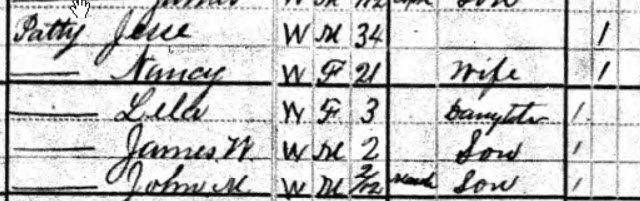 Son
Patty Jesse W M 34 1
—— Nancy W F 21 Wife 1
—— Lela W F 3 Daughter 1
—— James W W M 2 Son 1
—— John M W M 2/12 March Son 1